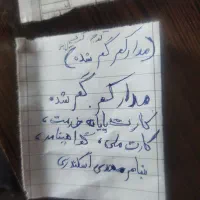 (مدارک گم شده)
مدارک گم شده
کارت پایان خدمت،
کارت ملی، گواهینامه،
بنام مهدی اسکندری